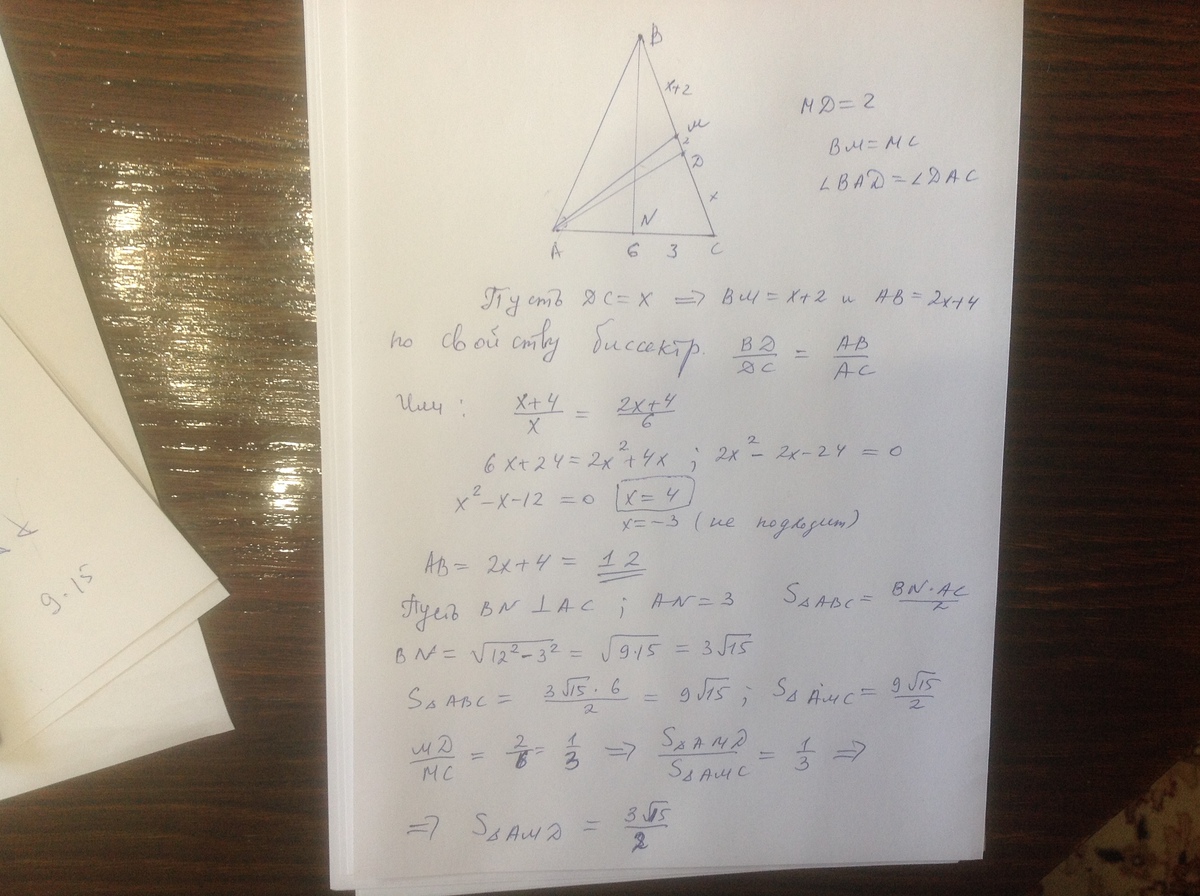 B
x+2
M
2
D
x
A
N
6
3
C
MD = 2
BM = MC
∠BAD = ∠DAC
Пусть DC = x ⇒ BM = x+2 и AB = 2x+4
по свойству биссектр. BD/DC = AB/AC
Или: x+4/x = 2x+4/6
6x+24 = 2x²+4x ; 2x² - 2x - 24 = 0
x² - x - 12 = 0 x = 4
x = -3 (не подходит)
AB = 2x+4 = 12
Пусть BN ⊥ AC ; AN = 3 S△ABC = BN·AC/2
BN = √12²-3² = √9·15 = 3√15
S△ABC = 3√15·6/2 = 9√15 ; S△AMC = 9√15/2
MD/MC = 2/6 = 1/3 ⇒ S△AMD/S△AMC = 1/3 ⇒
⇒ S△AMD = 3√15/2
9·15